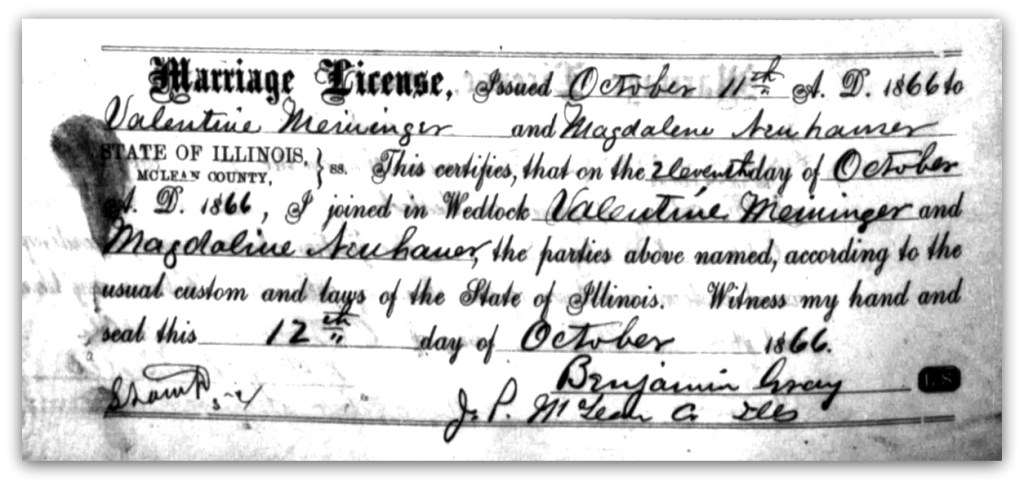 Marriage License, Issued October 11th A. D. 1866 to
Valentine Meininger and Magdalene Neuhauser
STATE OF ILLINOIS, } ss. This certifies, that on the Eleventh day of October
McLEAN COUNTY,
A. D. 1866, I joined in Wedlock Valentine Meininger and
Magdaline Neuhauer, the parties above named, according to the
usual custom and laws of the State of Illinois. Witness my hand and
seal this 12th day of October 1866.
Benjamin Gray L S
J. P. McLean Co Ills